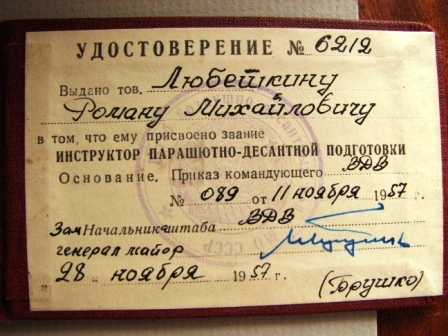 УДОСТОВЕРЕНИЕ № 6212
Выдано тов. Любешкину
Роману Михайловичу
в том, что ему присвоено звание
ИНСТРУКТОР ПАРАШЮТНО-ДЕСАНТНОЙ ПОДГОТОВКИ
Основание. Приказ командующего ВДВ
№ 089 от 11 ноября 1957 г.
Зам Начальник штаба ВДВ
генерал майор
28 " ноября 1957 г. (Горушко)